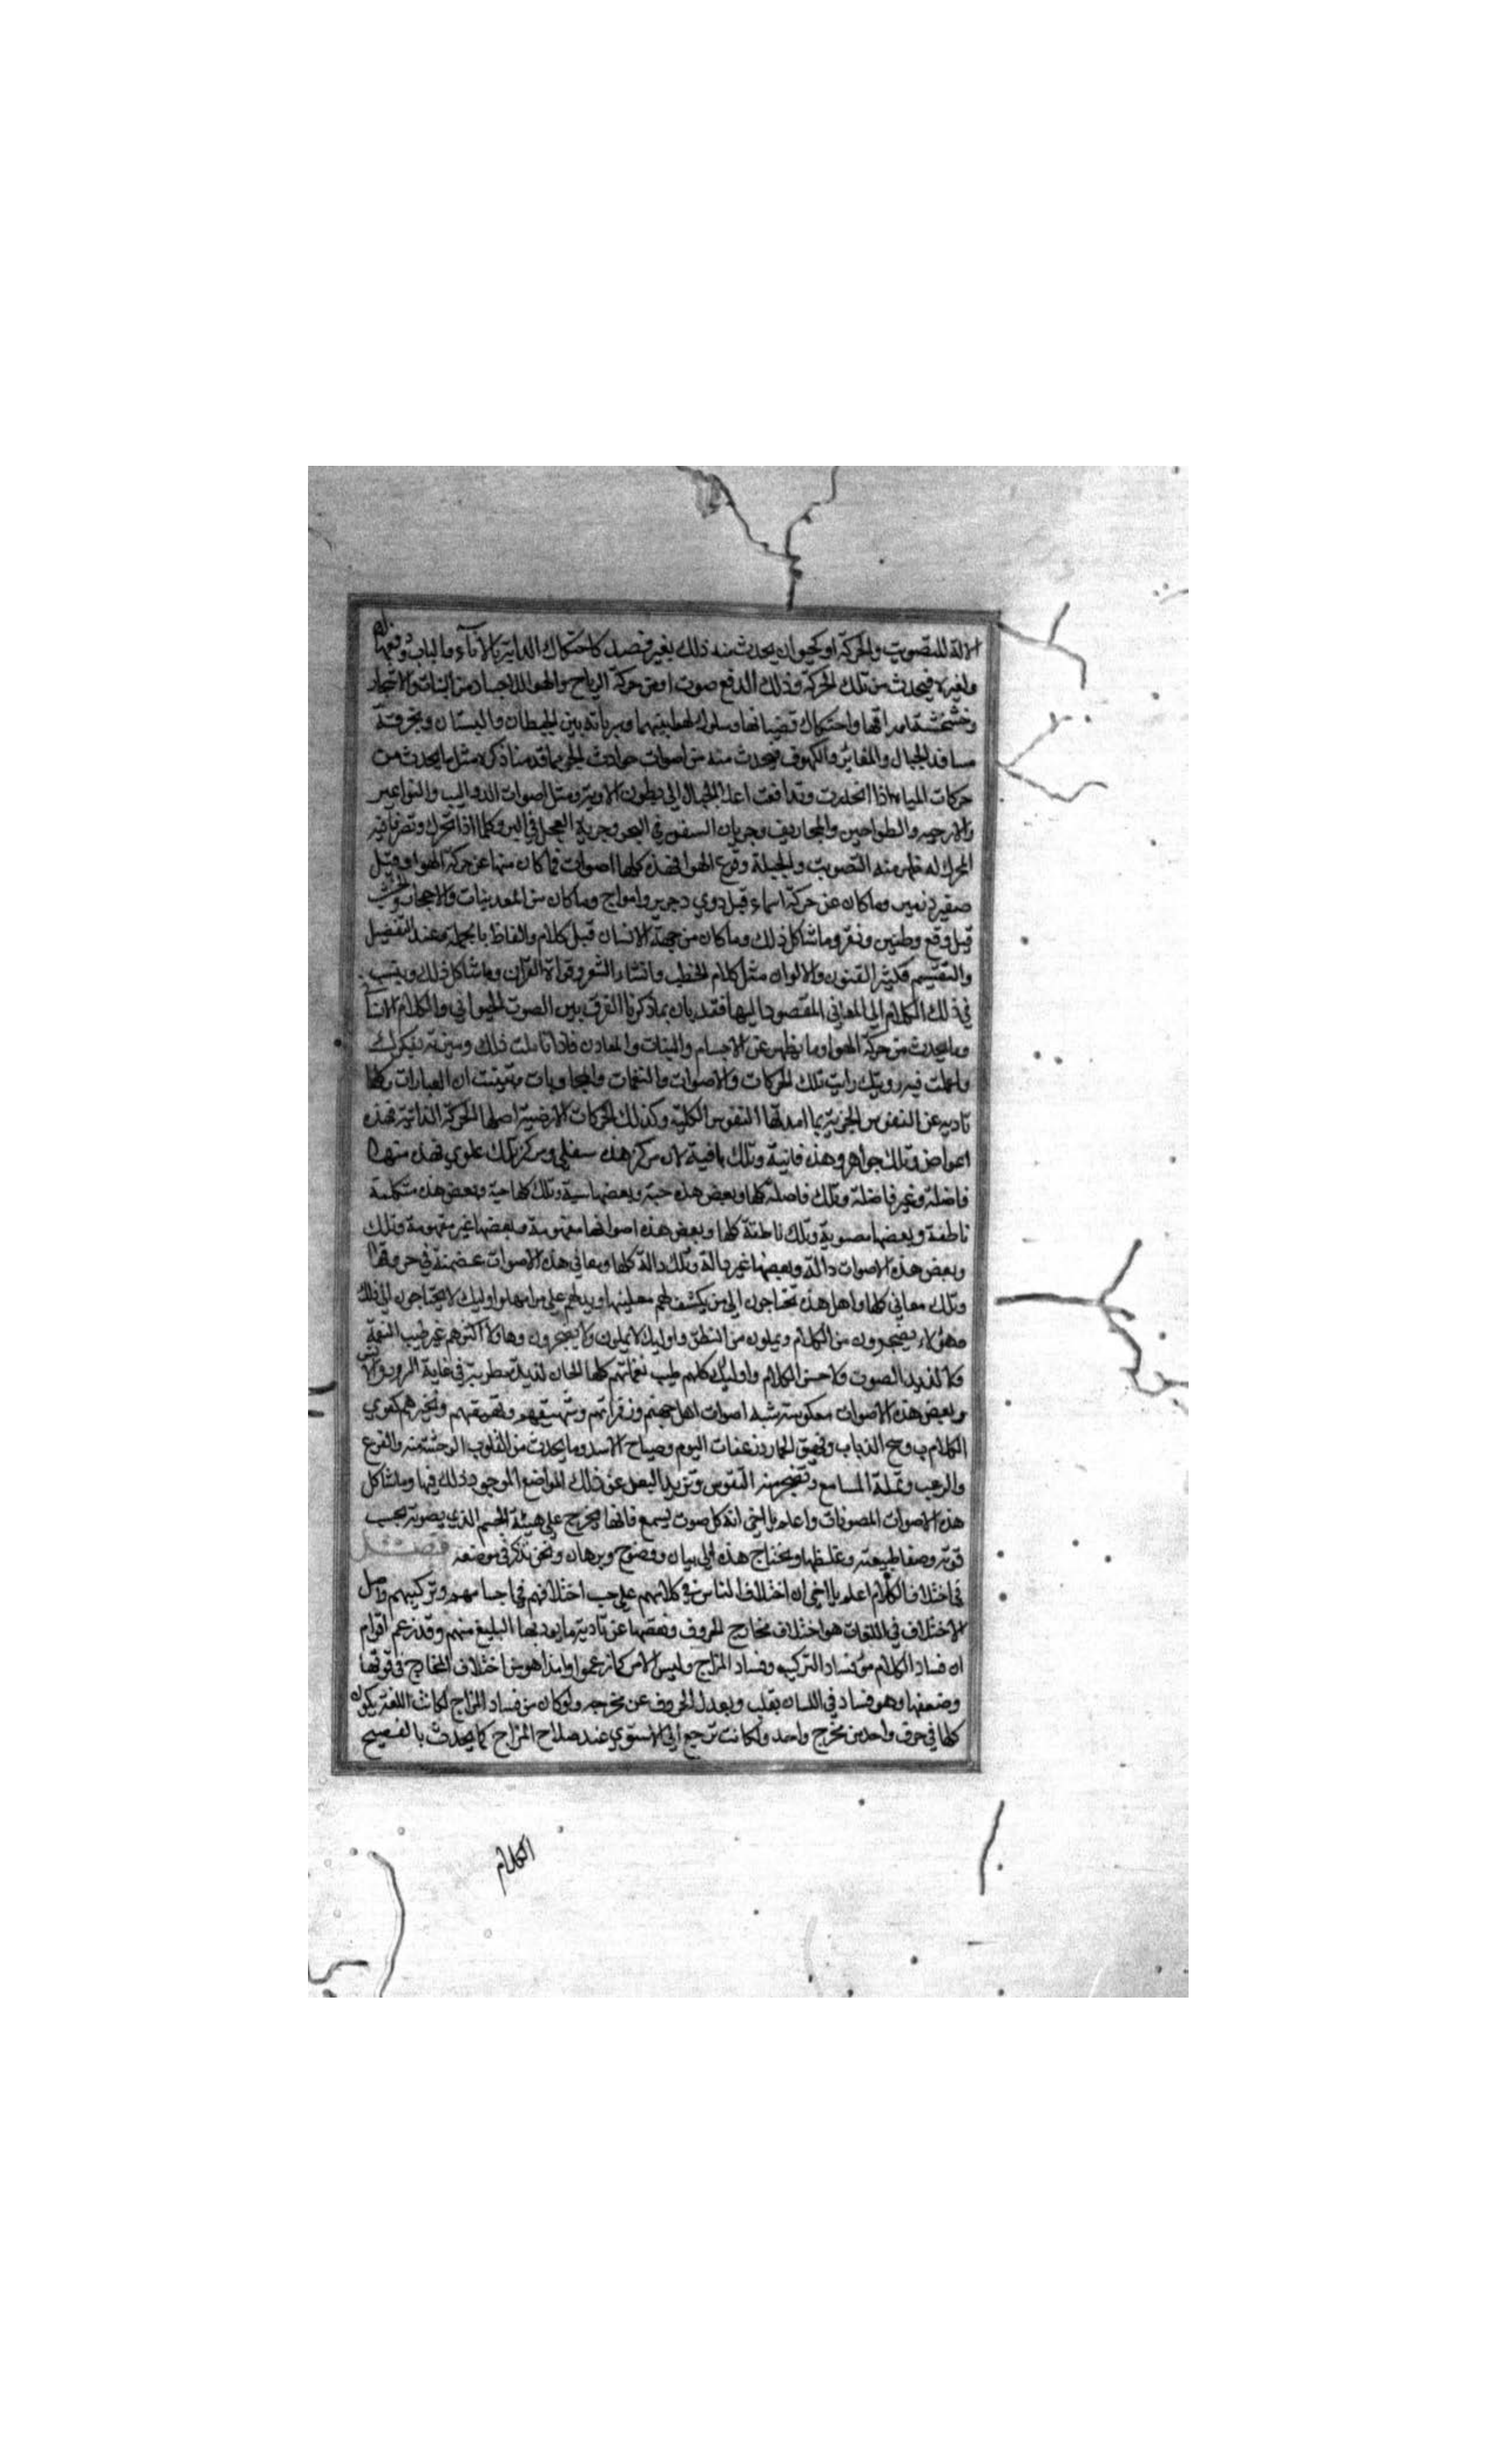 الالة للتصويت والحركة او كحيوان يحدث منه ذلك بغير قصد كاحتكاك الدابة بالاناء والباب ودفعها له
ولغيره فيحدث من تلك الحركة وذلك الدفع صوت او من حركة الرياح والهواء الاجساد من النبات والاشجار
وخشخشة اوراقها واحتكاك قضبانها وسلوك وسريانه بين الحيطان والبستان وبخرقة
مسافد الجبال والمغائر والكهوف فيحدث منه من اصوات حوادث الجو بما قدمنا ذكره مثل ما يحدث من
حركات المياه اذا انحدرت وتدافعت اعلا الجبال الى بطون الاودية ومثل اصوات الدواليب والنواعير
والارحيه والطواحين والمجاريف وجريان السفن في البحر وجرية العجل في البر وكلما اذا تحرك وتصرف فيه
المحرك له ظهر منه التصويت والجبلة وقرع الهوا فهذه كلها اصوات فما كان منها عن حركة الهوا قيل
صفير زمير وما كان عن حركة الماء قيل دوي وامواج وما كان من المعدنيات والاحجار والخشب
قيل وقع وطنين ونقر وما شاكل ذلك وما كان من جهة الانسان قيل كلام والفاظ بالجملة وعند التفصيل
والتقسيم فكثير الفنون والالوان مثل كلام الخطب وانشاد الشعر وقراة القران وما شاكل ذلك وينسب
في ذلك الكلام الى المعاني المقصود اليها فقد بان بما ذكرنا الفرق بين الصوت الحيواني والكلام الانسا
وما يحدث من حركة الهوا وما يظهر عن الاجسام والنبات والمعادن فاذا تاملت ذلك وميزته بفكرك
واعملت فيه رويتك رايت تلك الحركات والاصوات والنغمات والمجاوبات وتبينت ان العبارات كلها
تاديه عن النفوس الجزية بما امدتها النفوس الكلية وكذلك الحركات الارضية اصلها الحركة الذاتية فهذه
اعراض وتلك جواهر وهذه فانية وتلك باقية لان مركز هذه سفلي ومركز تلك علوي فهذه منها
فاضلة وغير فاضلة وتلك فاضلة كلها وبعض هذه حية وبعضها ميتة وتلك كلها حية وبعض هذه متكلمة
ناطقة وبعضها مصوتة وتلك ناطقة كلها وبعض هذه اصواتها مفهومة وبعضها غير مفهومة وتلك
وبعض هذه الاصوات دالة وبعضها غير دالة وتلك دالة كلها ومعاني هذه الاصوات مضمنة في حروفها
وتلك معاني كلها واهل هذه تحتاجون الى من يكشف لهم معانيها ويدلهم على مرامها واوليك لا يحتاجون الى ذلك
وهؤلاء يضجرون من الكلام ويملون من النطق واوليك لا يملون ولا يضجرون وهاولا اكثرهم غير طيب النغمة
ولا لذيذ الصوت ولا حسن الكلام واوليك كلهم طيب نغماتهم كلها الحان لذيذة مطربة في غاية السرور والانس
وبعض هذه الاصوات معكوسة تشبه اصوات اهل جهنم وزفراتهم وشهيقهم
الكلاب ونبح الذياب ونهيق الحمار وزعقات البوم وصياح الاسد وما يحدث من القلوب الوحشة منه والفزع
والرعب وتمله المسامع وتضجر منه النفوس وتريد البعد عن ذلك المواضع الموجود ذلك فيها وما شاكل
هذه الاصوات المصوتات واعلم يا اخي انه كل صوت يسمع فانها يخرج على هيئة الجسم الذي يصوته بحسب
قوته وصفا طبيعته وغلظها ويحتاج هذه الى بيان ووضوح وبرهان ونحن نذكره في موضعه فصل
في اختلاف الكلام اعلم يا اخي ان اختلاف الناس في كلامهم على حسب اختلافهم في اجسامهم وتركيبهم واصل
الاختلاف في اللغات هو اختلاف مخارج الحروف ونقصها عن تادية ما يوديها البليغ منهم وقد زعم اقوام
ان فساد الكلام من فساد التركيب وفساد المزاج وليس الامر كما زعموا وانما هو من اختلاف المخارج في قوتها
وضعفها وهو فساد في اللسان يقلب ويعدل الحروف عن مخرجه ولو كان من فساد المزاج لكانت اللغة يكون
كلها في حرف واحد من مخرج واحد ولكانت ترجع الى الاستوي عند صلاح المزاج كما يحدث بالفصيح
الكلام